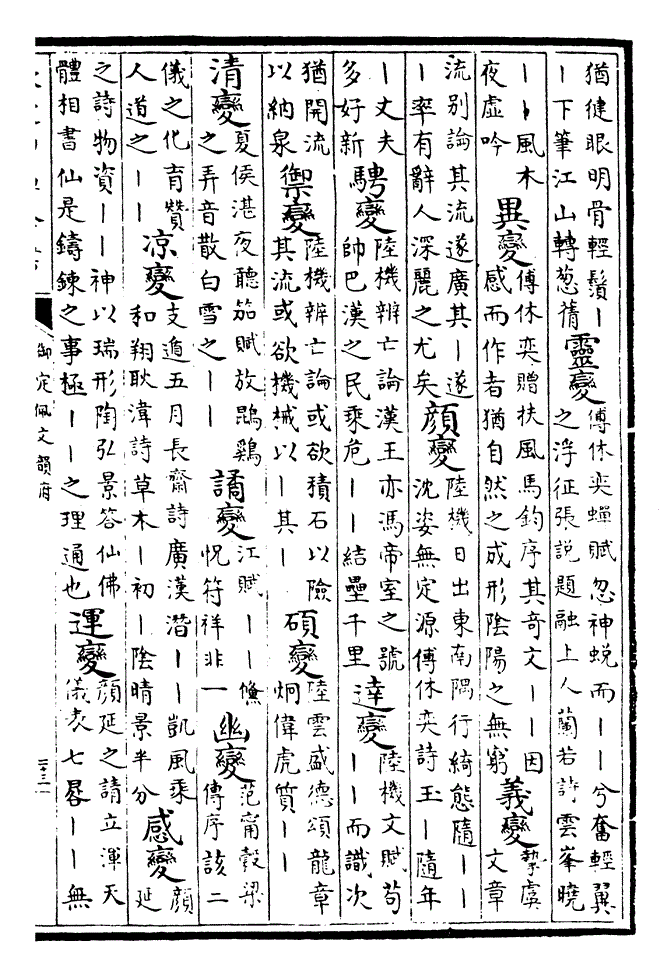 猶徤眼明骨輕鬚丨
丨下筆江山轉葱蒨
靈變
傅休奕蟬賦忽神蜕而丨丨兮奮輕翼
之浮征張説題融上人蘭若詩雲峯曉
丨丨風木
夜虛吟
異變
傅休奕贈扶風馬鈞序其奇文丨丨因
感而作者猶自然之成形陰陽之無窮
義變
摯虞
文章
流别論其流遂廣其丨遂
丨率有辭人深麗之尤矣
顔變
陸機日出東南隅行綺態隨丨丨
沈姿無定源傅休奕詩玉丨隨年
丨丈夫
多好新
騁變
陸機辨亡論漢王亦馮帝室之號
帥巴漢之民乘危丨丨結壘千里
達變
陸機文賦苟
丨丨而識次
猶開流
以納泉
禦變
陸機辨亡論或欲積石以險
其流或欲機械以丨其丨
碩變
陸雲盛德頌龍章
炯偉虎質丨丨
清變
夏侯湛夜聽笳賦放鵾鷄
之弄音散白雪之丨丨
譎變
江賦丨丨儵
怳符祥非一
幽變
范甯榖梁
傳序該二
儀之化育贊
人道之丨丨
凉變
支遁五月長齋詩廣漢潛丨丨凱風乘
和翔耿湋詩草木丨初丨陰晴景半分
感變
顔
延
之詩物資丨丨神以瑞形陶弘景答仙佛
體相書仙是鑄鍊之事極丨丨之理通也
運變
顔延之請立渾天
儀表七晷丨丨無
御定佩文韻府